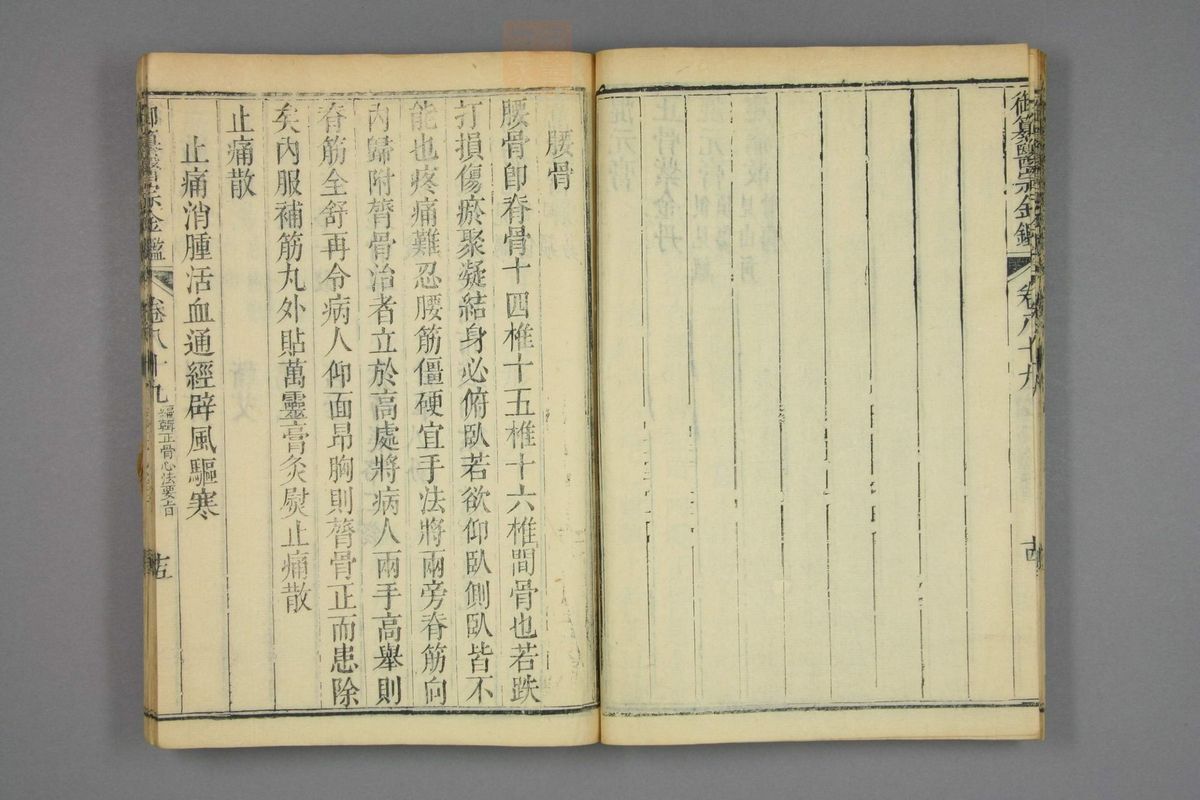 御纂醫宗金鑑
卷八十九
腰骨
腰骨卽脊骨十四椎十五椎十六椎間骨也若跌
打損傷瘀聚凝結身必俯臥若欲仰臥側臥皆不
能也疼痛難忍腰筋僵硬宜手法將兩旁脊筋向
內歸附膂骨治者立於高處將病人兩手高舉則
脊筋全舒再令病人仰面昂胸則膂骨正而患除
矣內服補筋丸外貼萬靈膏灸熨止痛散
止痛散
止痛消腫活血通經辟風驅寒
御纂醫宗金鑑
卷八十九
編輯正骨心法要旨